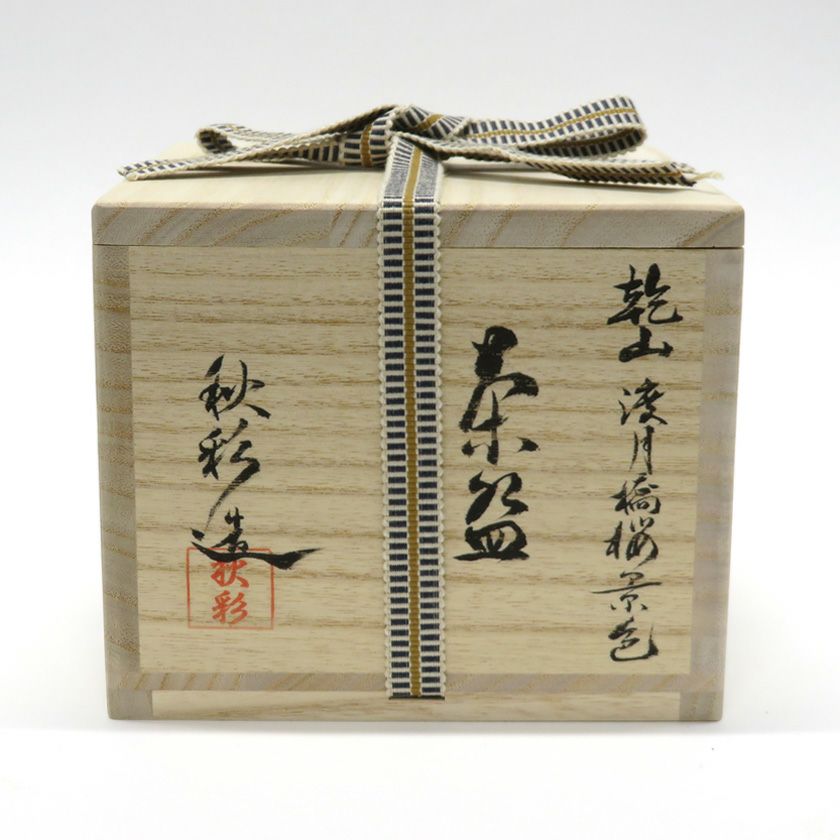 乾山 渡月橋桜景色
茶盌
秋彩造
秋彩